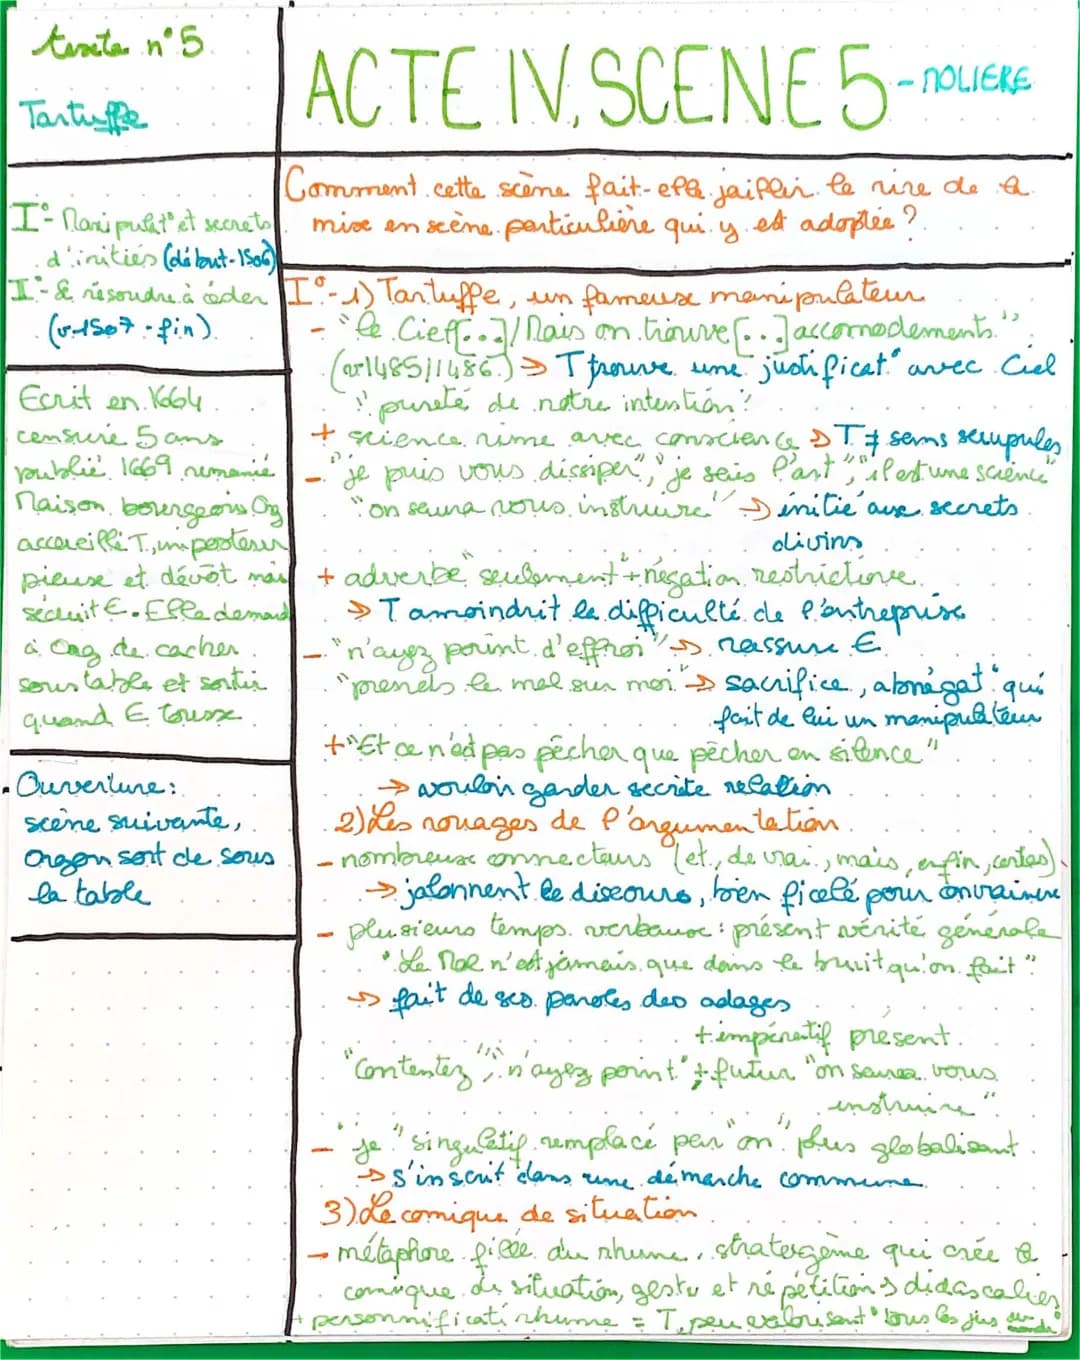 texte n°5
Tartuffe
ACTE IV, SCENE 5 - MOLIERE
I°- Manipulat° et secrets
d'initiés (début-1506)
I°- Se résoudre à céder
(v.1507-fin)
Ecrit en 1664
censuré 5 ans
publié 1669 remanié
Maison bourgeois Org
accueille T, imposteur
pieuse et dévôt mais
séduit E. Elle demand
à Org de cacher
sous table et sortir
quand E tousse
Ouverture:
scène suivante,
Orgon sort de sous
la table
Comment cette scène fait-elle jaillir le rire de la
mise en scène particulière qui y est adoptée ?
I°-1) Tartuffe, un fameux manipulateur
- "le Ciel[...]/Mais on trouve[...]accomodements"
(v.1485/1486.) → T trouve une justificat° avec Ciel
"pureté de notre intention"
+ science rime avec conscience → T ≠ sans scrupules
- "je puis vous dissiper", "je sais l'art", "il est une science"
"on saura vous instruire" → initié aux secrets
divins
+ adverbe "seulement" + négation restrictive
→ T amoindrit la difficulté de l'entreprise
- "n'ayez point d'effroi" → rassure E
"prends le mal sur moi" → sacrifice, abnégat° qui
fait de lui un manipulateur
+ "Et ce n'est pas pécher que pécher en silence"
→ vouloir garder secrète relation
2) Les rouages de l'argumentation
- nombreux connecteurs (et, de vrai, mais, enfin, certes)
→ jalonnent le discours, bien ficelé pour convaincre
- plusieurs temps verbaux : présent vérité générale
"Le Mal n'est jamais que dans le bruit qu'on fait"
→ fait de ses paroles des adages
+ impératif présent
"Contentez", "n'ayez point" + futur "on saura vous
instruire"
- "je" singulatif remplacé par "on" plus globalisant
→ s'inscrit dans une démarche commune
3) Le comique de situation
- métaphore filée du rhume, stratergème qui crée le
comique de situation, geste et répétition → didascalies
+ personnificati rhume = T, peu valorisant "tous les jus du monde"